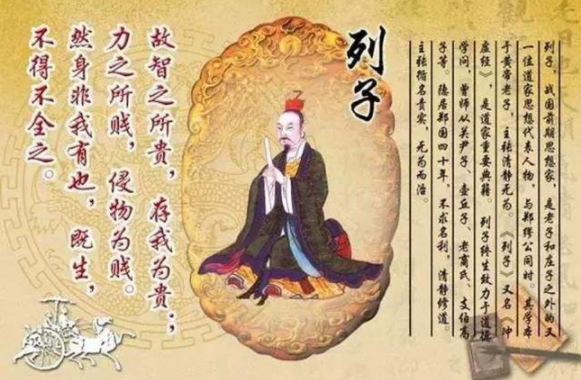 列子
列子,战国前期思想家,是老子和庄子之外的又
一位道家思想代表人物,与郑缪公同时。其学本
于黄帝老子,主张清静无为。《列子》又名《冲
虚经》,是道家重要典籍。列子终生致力于道德
学问,曾师从关尹子、壶丘子、老商氏、支伯高
子等。隐居郑国四十年,不求名利,清静修道。
主张循名责实,无为而治。
故智之所贵,存我为贵;
力之所贱,侵物为贱。
然身非我有也,既生,
不得不全之。